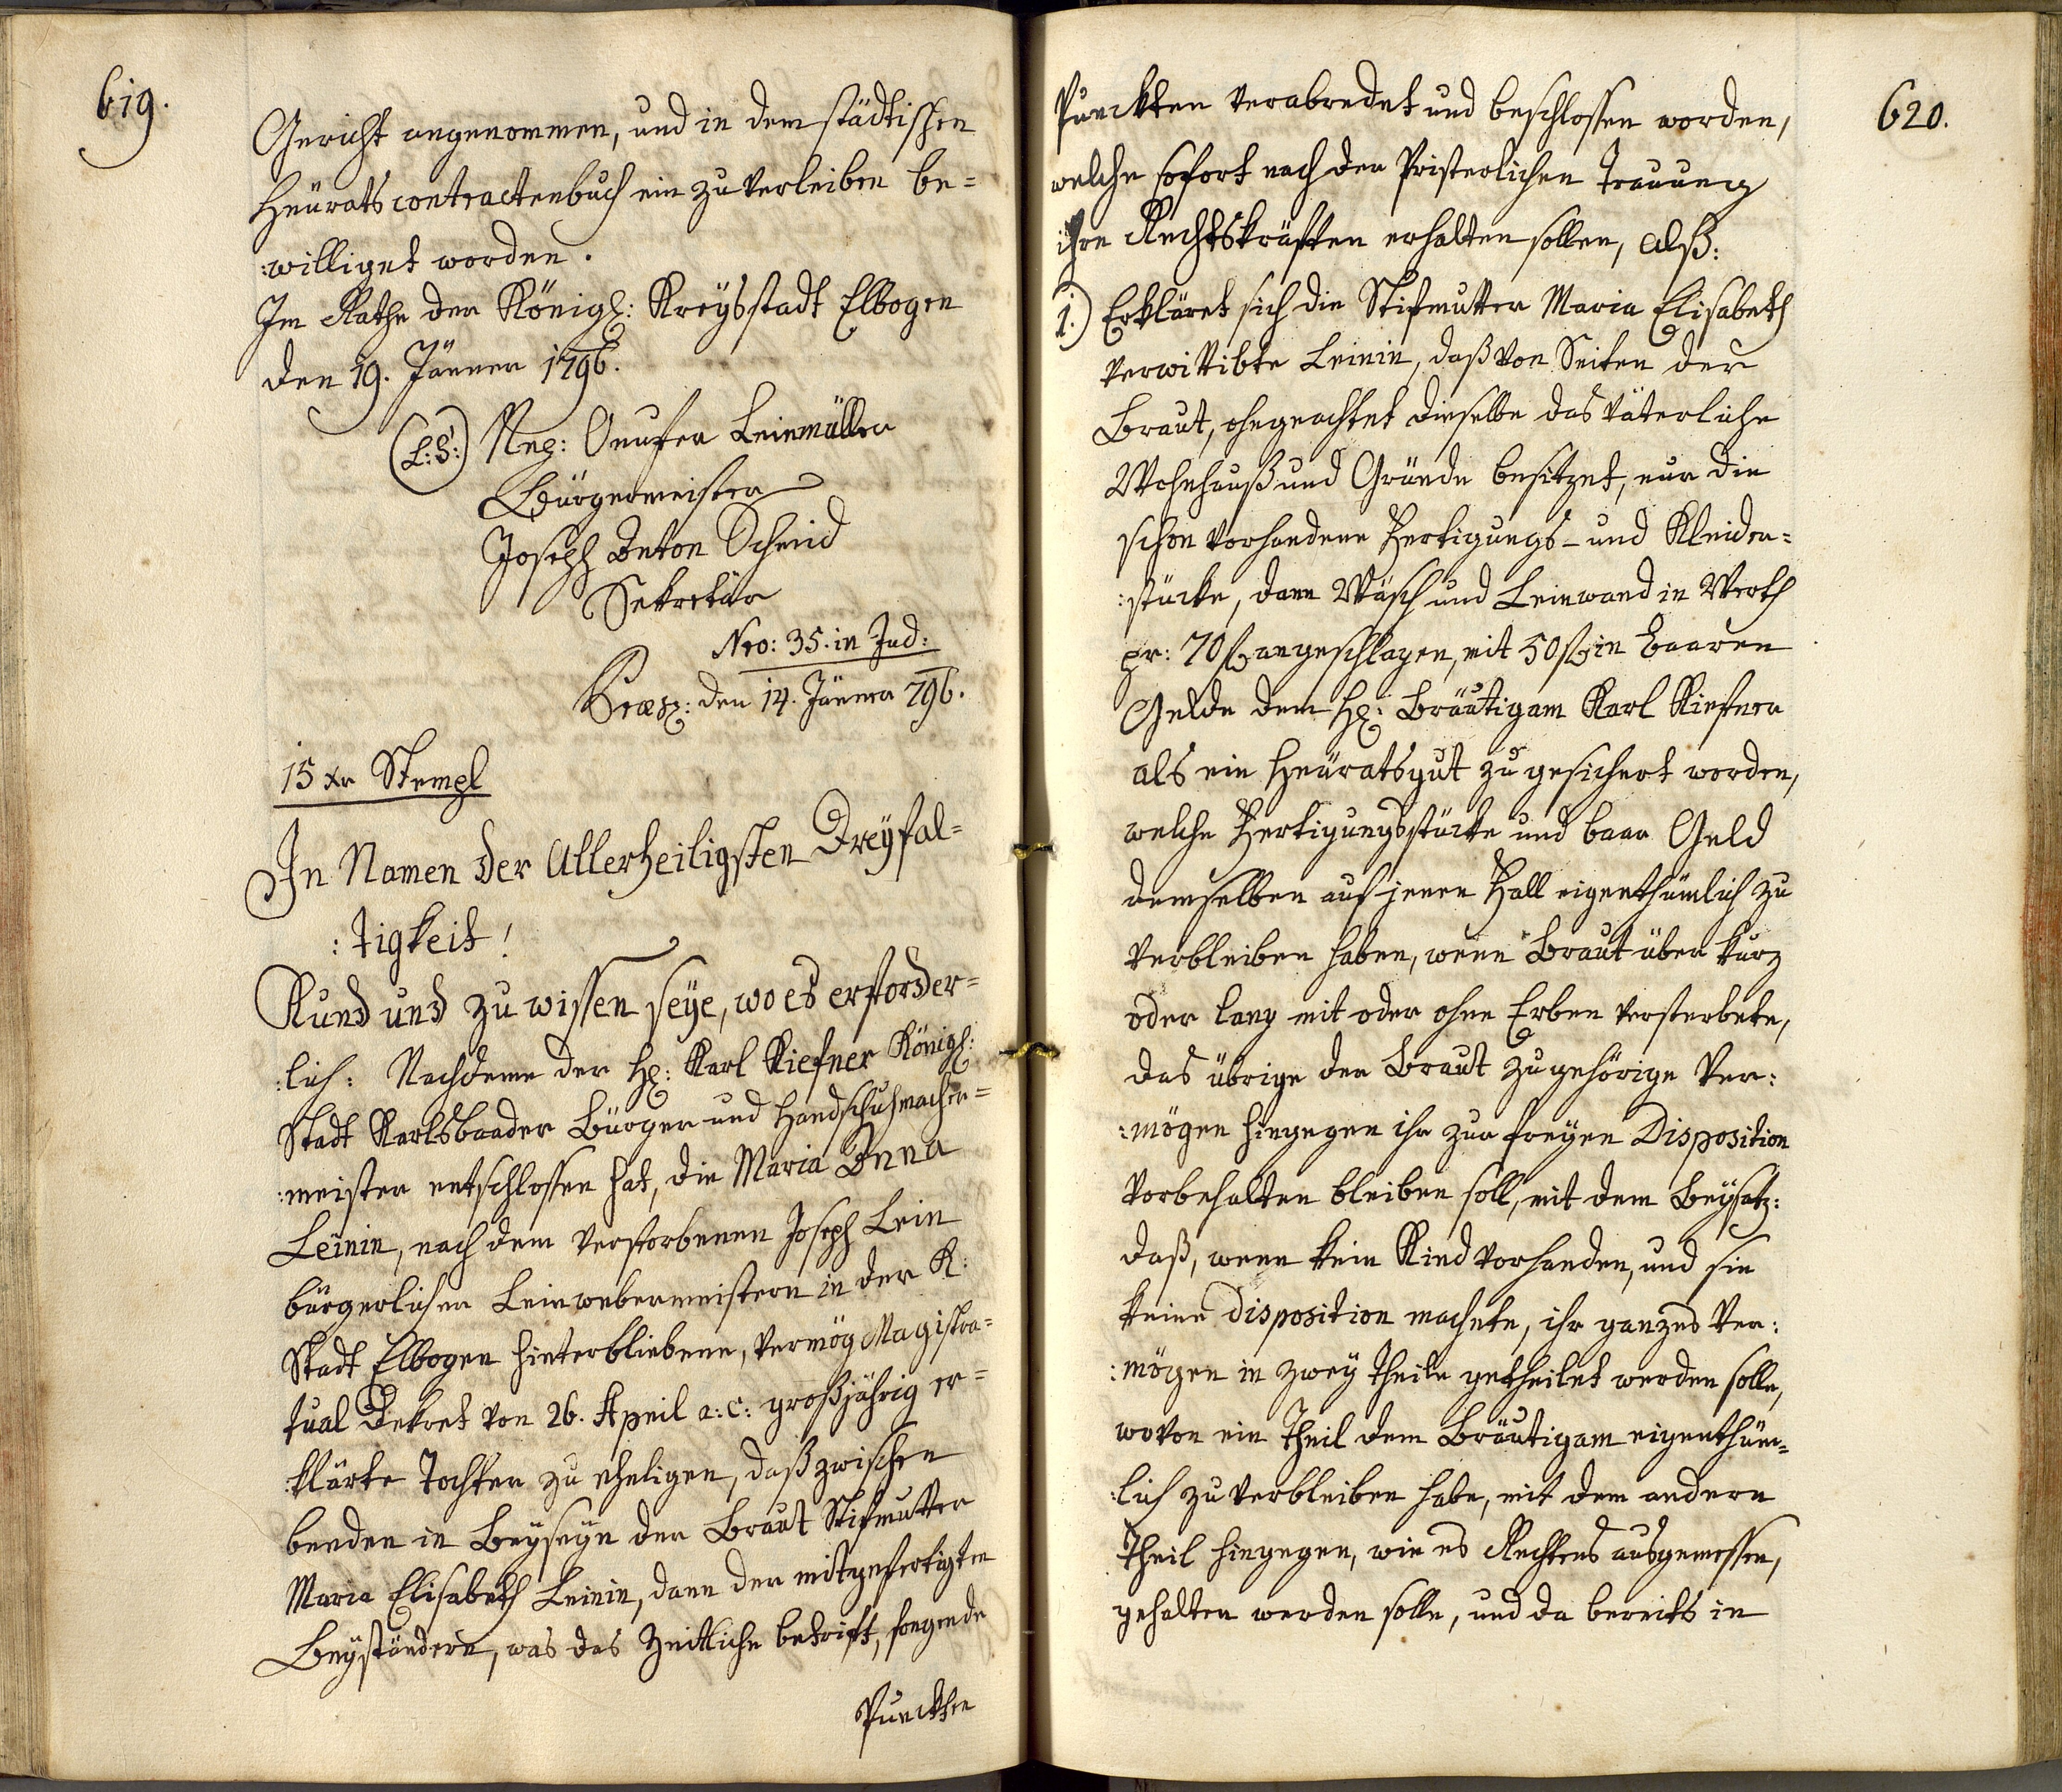 619.
Gericht angenommen, und in dem städtischen
Heurats contractenbuch ein zu verleiben be=
:williget worden.
Im Rathe der Königl: Kreysstadt Elbogen
den 19. Jänner 1796.
(L:S:) Neg: Onufer Leinmüller
Bürgermeister
Joseph Anton Schmid
Sekretär
Nro: 35. in Jud:
Præs: den 14. Jänner 796.
15 xr Stempl
In Namen der Allerheiligsten Dreyfal=
:tigkeit!
Kund und zu wissen seye, wo es erforder=
:lich: Nachdeme der H: Karl Kiefner Königl:
Stadt Karlsbaader Bürger und Handschuhmacher=
:meister entschlossen hat, die Maria Anna
Leinin, nach dem verstorbenen Joseph Lein
bürgerlicher Leinwebermeistern in der K:
Stadt Elbogen hinterbliebene, vermög Magistra=
tual Dekret von 26. April a: c: großjährig er=
:klärte Tochter zu eheligen, daß zwischen
beeden in Beyseyn der Braut Stifmutter
Maria Elisabeth Leinin, dann der mitgefertigten
Beyständern, was das Zeitliche betrift, folgende
Punckten
620.
Punckten verabredet und beschlossen worden,
welche sofort nach der Pristerlichen Trauung
ihre Rechtskräften erhalten sollen, alß:
1.) Erkläret sich die Stifmutter Maria Elisabeth
verwittibte Leinin, daß von Seiten der
Braut, ohngeachtet dieselbe das väterliche
Wohnhauß und Gründe besitzet, nur die
schon vorhandene Fertigungs- und Kleider=
:stücke, dann Wäsch und Leinwand in Werth
pr: 70 f angeschlagen, mit 50 f in baaren
Gelde dem H: Bräutigam Karl Kiefner
als ein Heuratsgut zu gesichert worden,
welche Fertigungsstücke und baar Geld
demselben auf jenen Fall eigenthümlich zu
verbleiben haben, wenn Braut über kurz
oder lang mit oder ohne Erben versterbete,
das übrige der Braut zugehörige Ver:
:mögen hingegen ihr zur freyen Disposition
vorbehalten bleiben soll, mit dem Beysatz:
daß, wenn kein Kind vorhanden, und sie
keine Disposition machete, ihr ganzes Ver:
:mögen in zwey Theile getheilet werden solle,
wovon ein Theil dem Bräutigam eigenthüm=
:lich zu verbleiben habe, mit dem andern
Theil hingegen, wie es Rechtens ausgemessen,
gehalten werden solle, und da bereits in